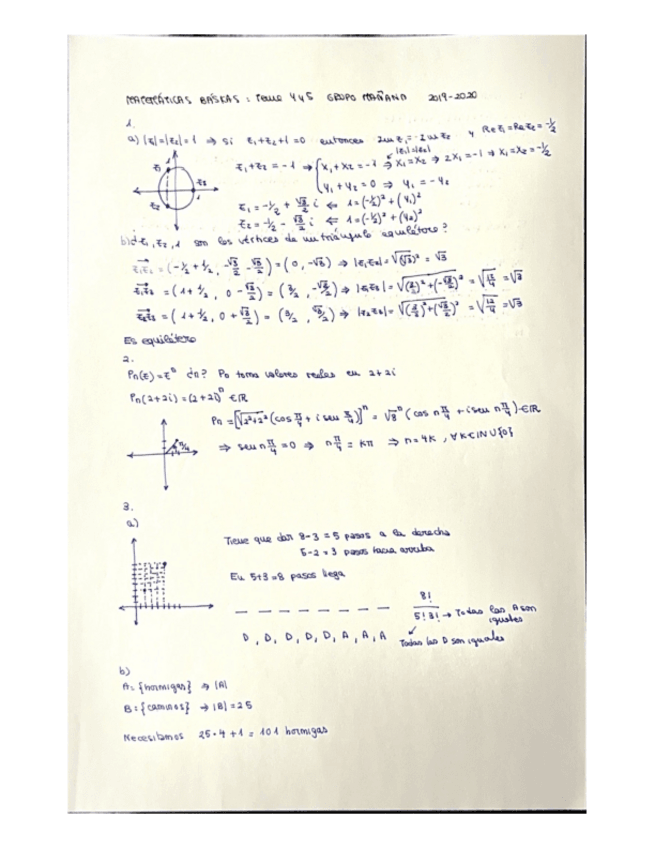 MATEMÁTICAS BÁSICAS: Tema 4 y 5 GRUPO MAÑANA 2019-2020
1.
a) |z₁|=|z₂|=1 ⇒ si z₁+z₂+1=0 entonces Im z₁=-Im z₂ y Re z₁=Re z₂=-1/2
z₁+z₂=-1 ⇒ { x₁+x₂=-1 ⇒ x₁=x₂ ⇒ 2x₁=-1 ⇒ x₁=x₂=-1/2
|z₁|=|z₂|
y₁+y₂=0 ⇒ y₁=-y₂
z₁=-1/2+√3/2 i ⇐ 1=(-1/2)²+(y₁)²
z₂=-1/2-√3/2 i ⇐ 1=(-1/2)²+(y₂)²
b) ¿z₁,z₂,1 son los vértices de un triángulo equilátero?
z₁z₂=(-1/2+1/2, -√3/2-√3/2)=(0,-√3) ⇒ |z₁z₂|=√(√3)²=√3
z₁z₃=(1+1/2, 0-√3/2)=(3/2,-√3/2) ⇒ |z₁z₃|=√(3/2)²+(-√3/2)²=√12/4=√3
z₂z₃=(1+1/2, 0+√3/2)=(3/2,√3/2) ⇒ |z₂z₃|=√(3/2)²+(√3/2)²=√12/4=√3
Es equilátero
2.
Pn(z)=zⁿ ¿n? Pn toma valores reales en 2+2i
Pn(2+2i)=(2+2i)ⁿ∈ℝ
Pn=[√2²+2²(cos π/4+i sen π/4)]ⁿ=√8ⁿ(cos nπ/4+i sen nπ/4)∈ℝ
π/4
⇒ sen nπ/4=0 ⇒ nπ/4=kπ ⇒ n=4k, ∀k∈ℕ∪{0}
3.
a)
Tiene que dar 8-3=5 pasos a la derecha
5-2=3 pasos hacia arriba
En 5+3=8 pasos llega
8!/5!3! → Todas las A son iguales
D, D, D, D, D, A, A, A
Todas las D son iguales
b)
A={hormigas} ⇒ |A|
B={caminos} → |B|=25
Necesitamos 25·4+1=101 hormigas